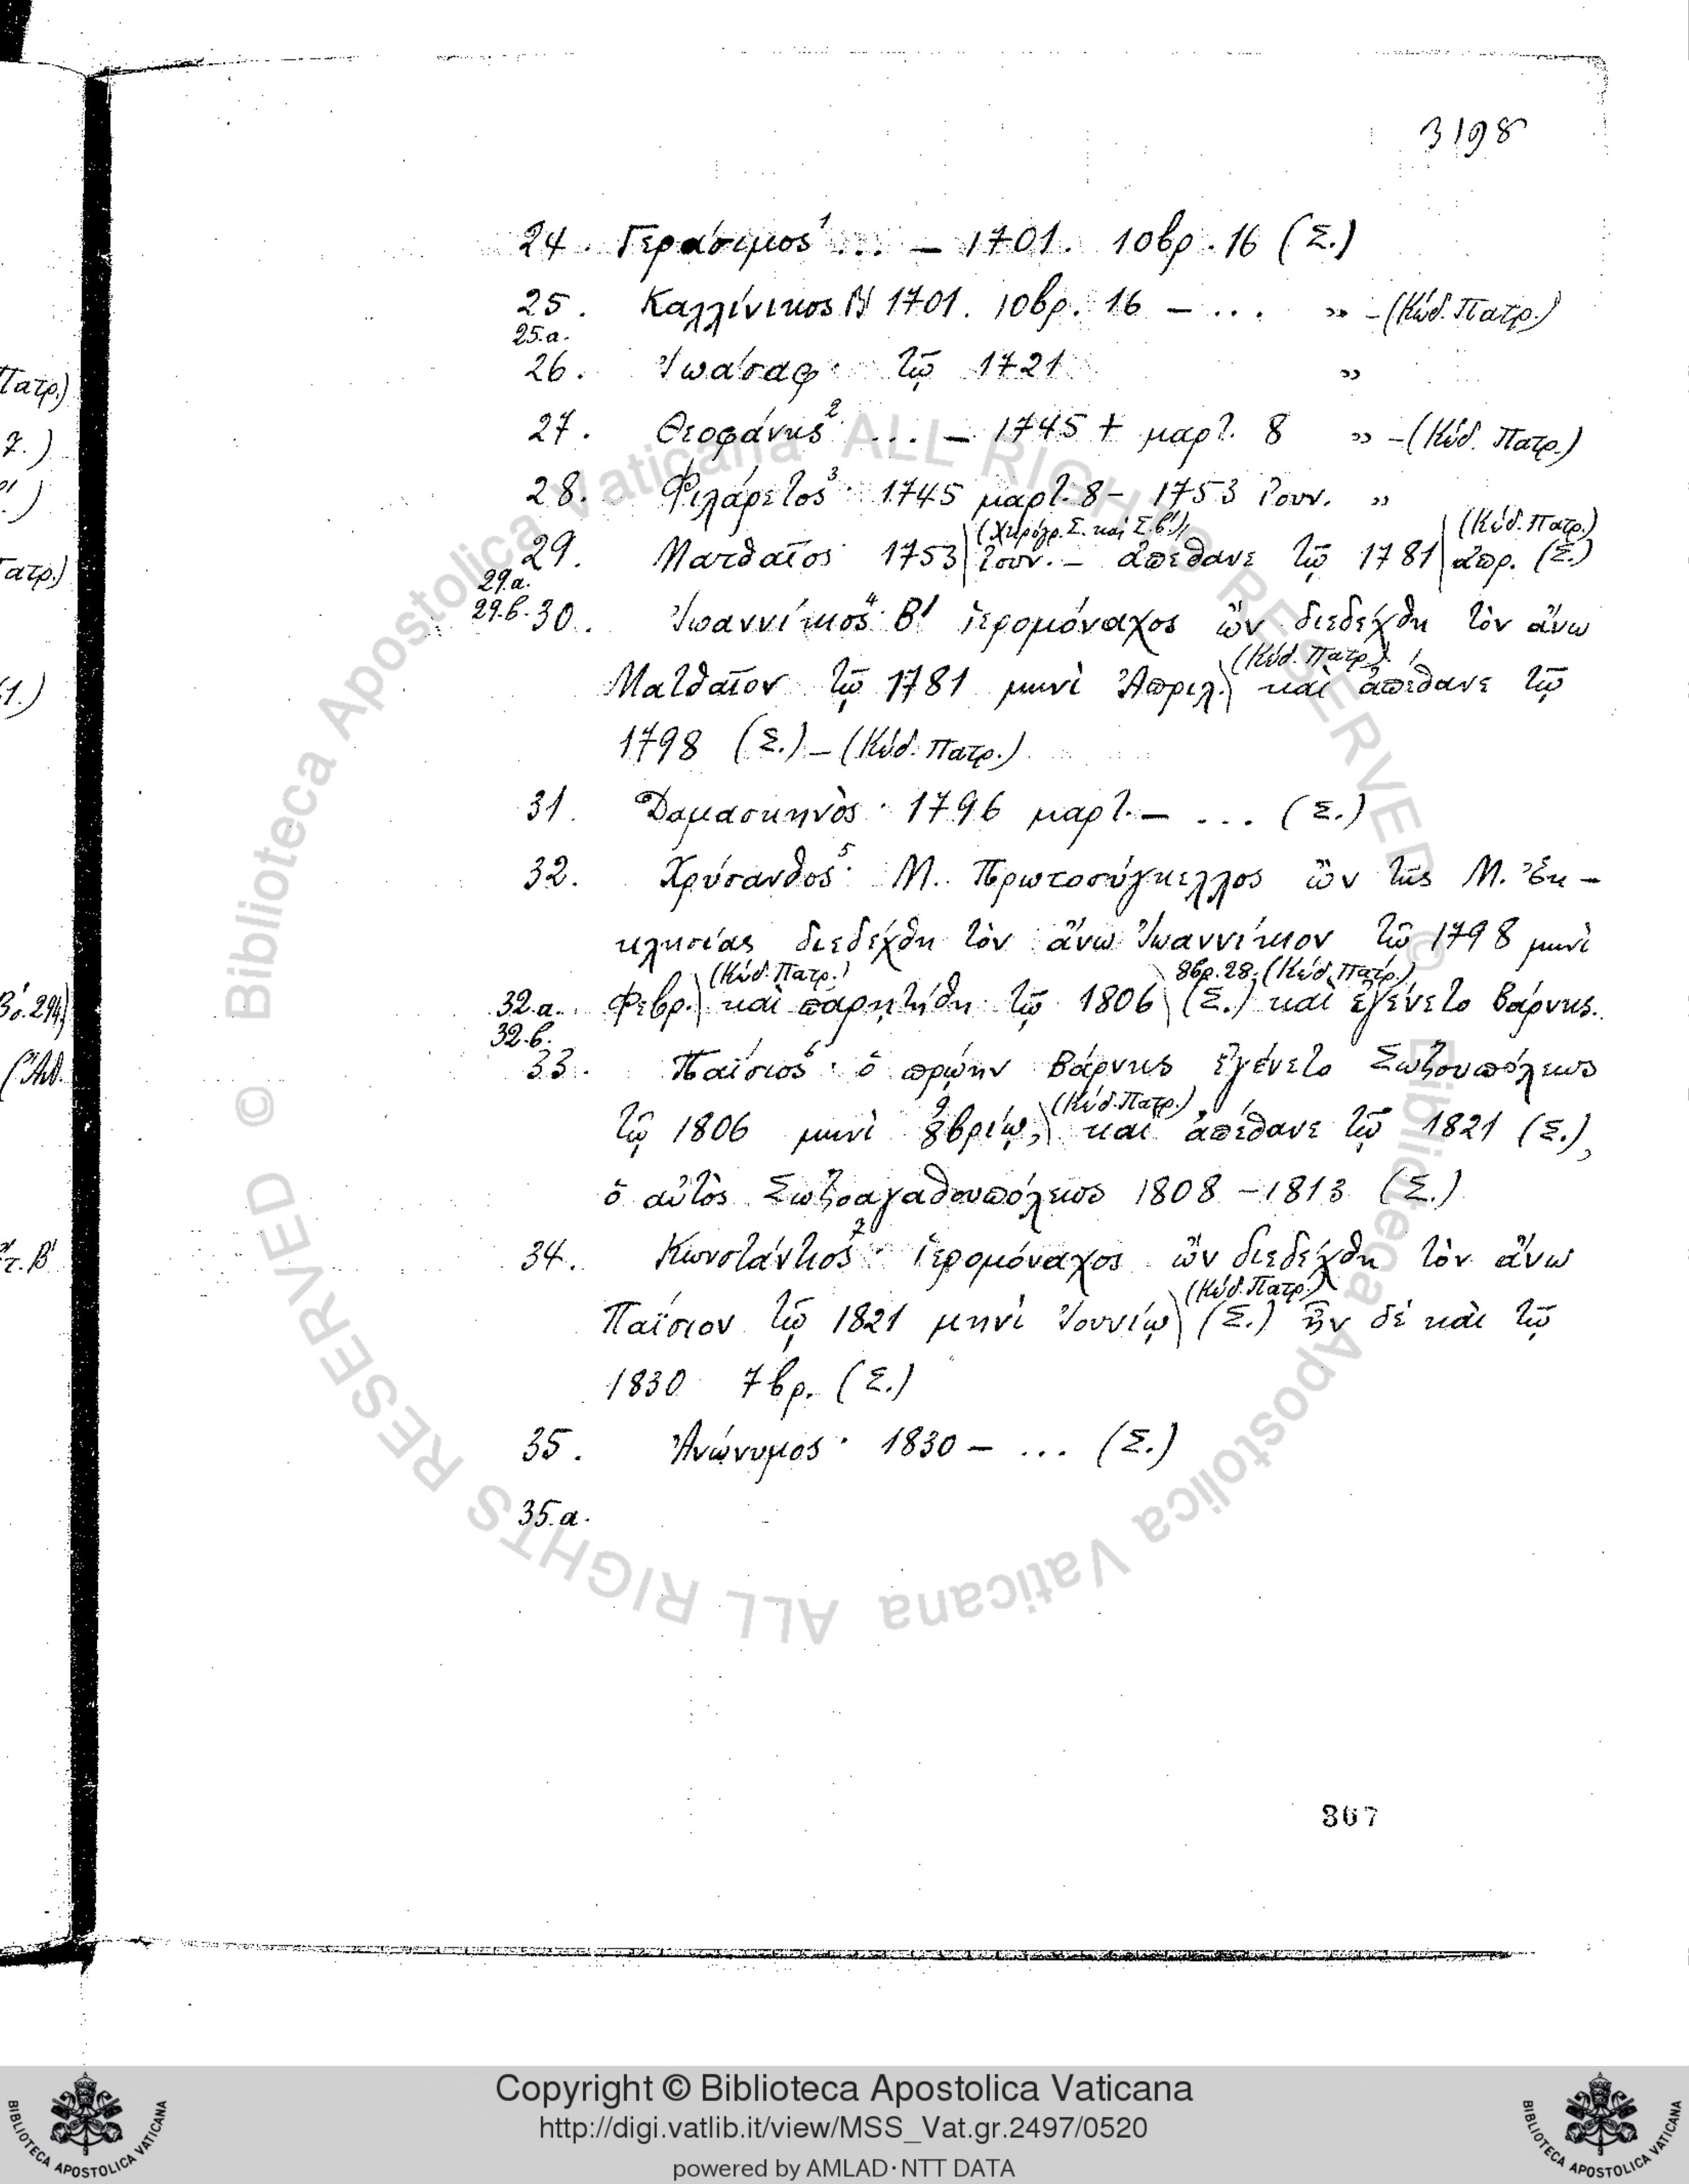 3198
24. Γεράσιμος¹ ... – 1701. 10βρ. 16 (Σ.)
25. Καλλίνικος 1701. 10βρ. 16 – ... » – (Κώδ. Πατρ.)
25.α.
26. Ἰωάσαφ· τῷ 1721 »
27. Θεοφάνης² ... – 1745 + μαρτ. 8 » – (Κώδ. Πατρ.)
28. Φιλάρετος³· 1745 μαρτ. 8 – 1753 Ἰουν. »
(Χειρόγρ. Σ. καὶ Σ. β΄) (Κώδ. Πατρ.)
29. Ματθαῖος· 1753 Ἰουν. – ἀπέθανε τῷ 1781 ἀπρ. (Σ.)
29.α.
29.β. 30. Ἰωαννίκιος⁴· Β΄ ἱερομόναχος ὢν διεδέχθη τὸν ἄνω
(Κώδ. Πατρ.)
Ματθαῖον τῷ 1781 μηνὶ Ἀπριλ. καὶ ἀπέθανε τῷ
1798 (Σ.) – (Κώδ. Πατρ.)
31. Δαμασκηνὸς· 1796 μαρτ. – ... (Σ.)
32. Χρύσανθος⁵· Μ. Πρωτοσύγκελλος ὢν τῆς Μ. Ἐκ–
κλησίας διεδέχθη τὸν ἄνω Ἰωαννίκιον τῷ 1798 μηνὶ
(Κώδ. Πατρ.) 8βρ. 28. (Κώδ. Πατρ.)
32.α. Φεβρ. καὶ παρῃτήθη τῷ 1806 (Σ.) καὶ ἐγένετο Βάρνης.
32.β.
33. Παΐσιος⁶· ὁ πρώην Βάρνης ἐγένετο Σωζουπόλεως
(Κώδ. Πατρ.)
τῷ 1806 μηνὶ 8βρίῳ, καὶ ἀπέθανε τῷ 1821 (Σ.),
ὁ αὐτὸς Σωζοαγαθουπόλεως 1808 – 1813 (Σ.)
34. Κωνστάντιος⁷· ἱερομόναχος ὢν διεδέχθη τὸν ἄνω
(Κώδ. Πατρ.)
Παΐσιον τῷ 1821 μηνὶ Ἰουνίῳ (Σ.) ἦν δὲ καὶ τῷ
1830 7βρ. (Σ.)
35. Ἀνώνυμος· 1830 – ... (Σ.)
35.α.
867
Πατρ.)
7.)
ατρ.)
1.)
294)
τ. Β΄
© Biblioteca Apostolica Vaticana ALL RIGHTS RESERVED
© Biblioteca Apostolica Vaticana ALL RIGHTS RESERVED
Copyright © Biblioteca Apostolica Vaticana
http://digi.vatlib.it/view/MSS_Vat.gr.2497/0520
powered by AMLAD·NTT DATA
BIBLIOTECA APOSTOLICA VATICANA
BIBLIOTECA APOSTOLICA VATICANA